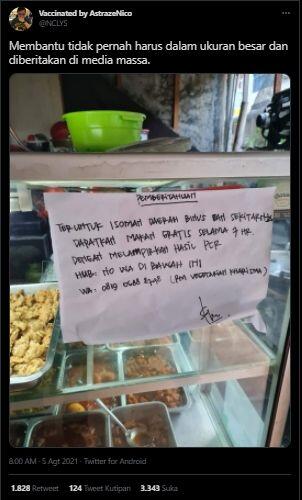 Vaccinated by AstrazeNico
@NCLYS
Membantu tidak pernah harus dalam ukuran besar dan
diberitakan di media massa.
PEMBERITAHUAN
TERUNTUK ISOMAN DAERAH BINUS DAN SEKITARNYA
DAPATKAN MAKAN GRATIS SELAMA 7 HR.
DENGAN MELAMPIRKAN HASIL PCR
HUB: NO WA DI BAWAH INI
WA: 0819 (RM VEGETARIAN KHARISMA)
8:00 AM · 5 Agt 2021 · Twitter for Android
1.828 Retweet 124 Tweet Kutipan 3.343 Suka